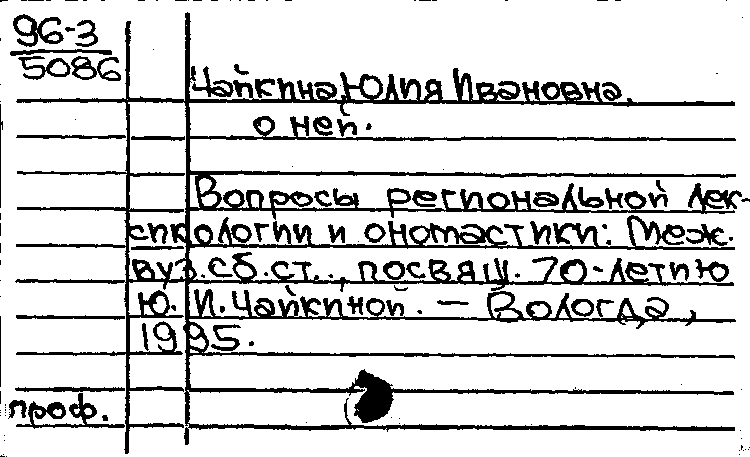 96-3
5086
Чайкина, Юлия Ивановна.
о ней.
Вопросы региональной лек-
сикологии и ономастики: Меж.
вуз. сб. ст.., посвящ. 70-летию
Ю. И. Чайкиной. — Вологда,
1995.
проф.